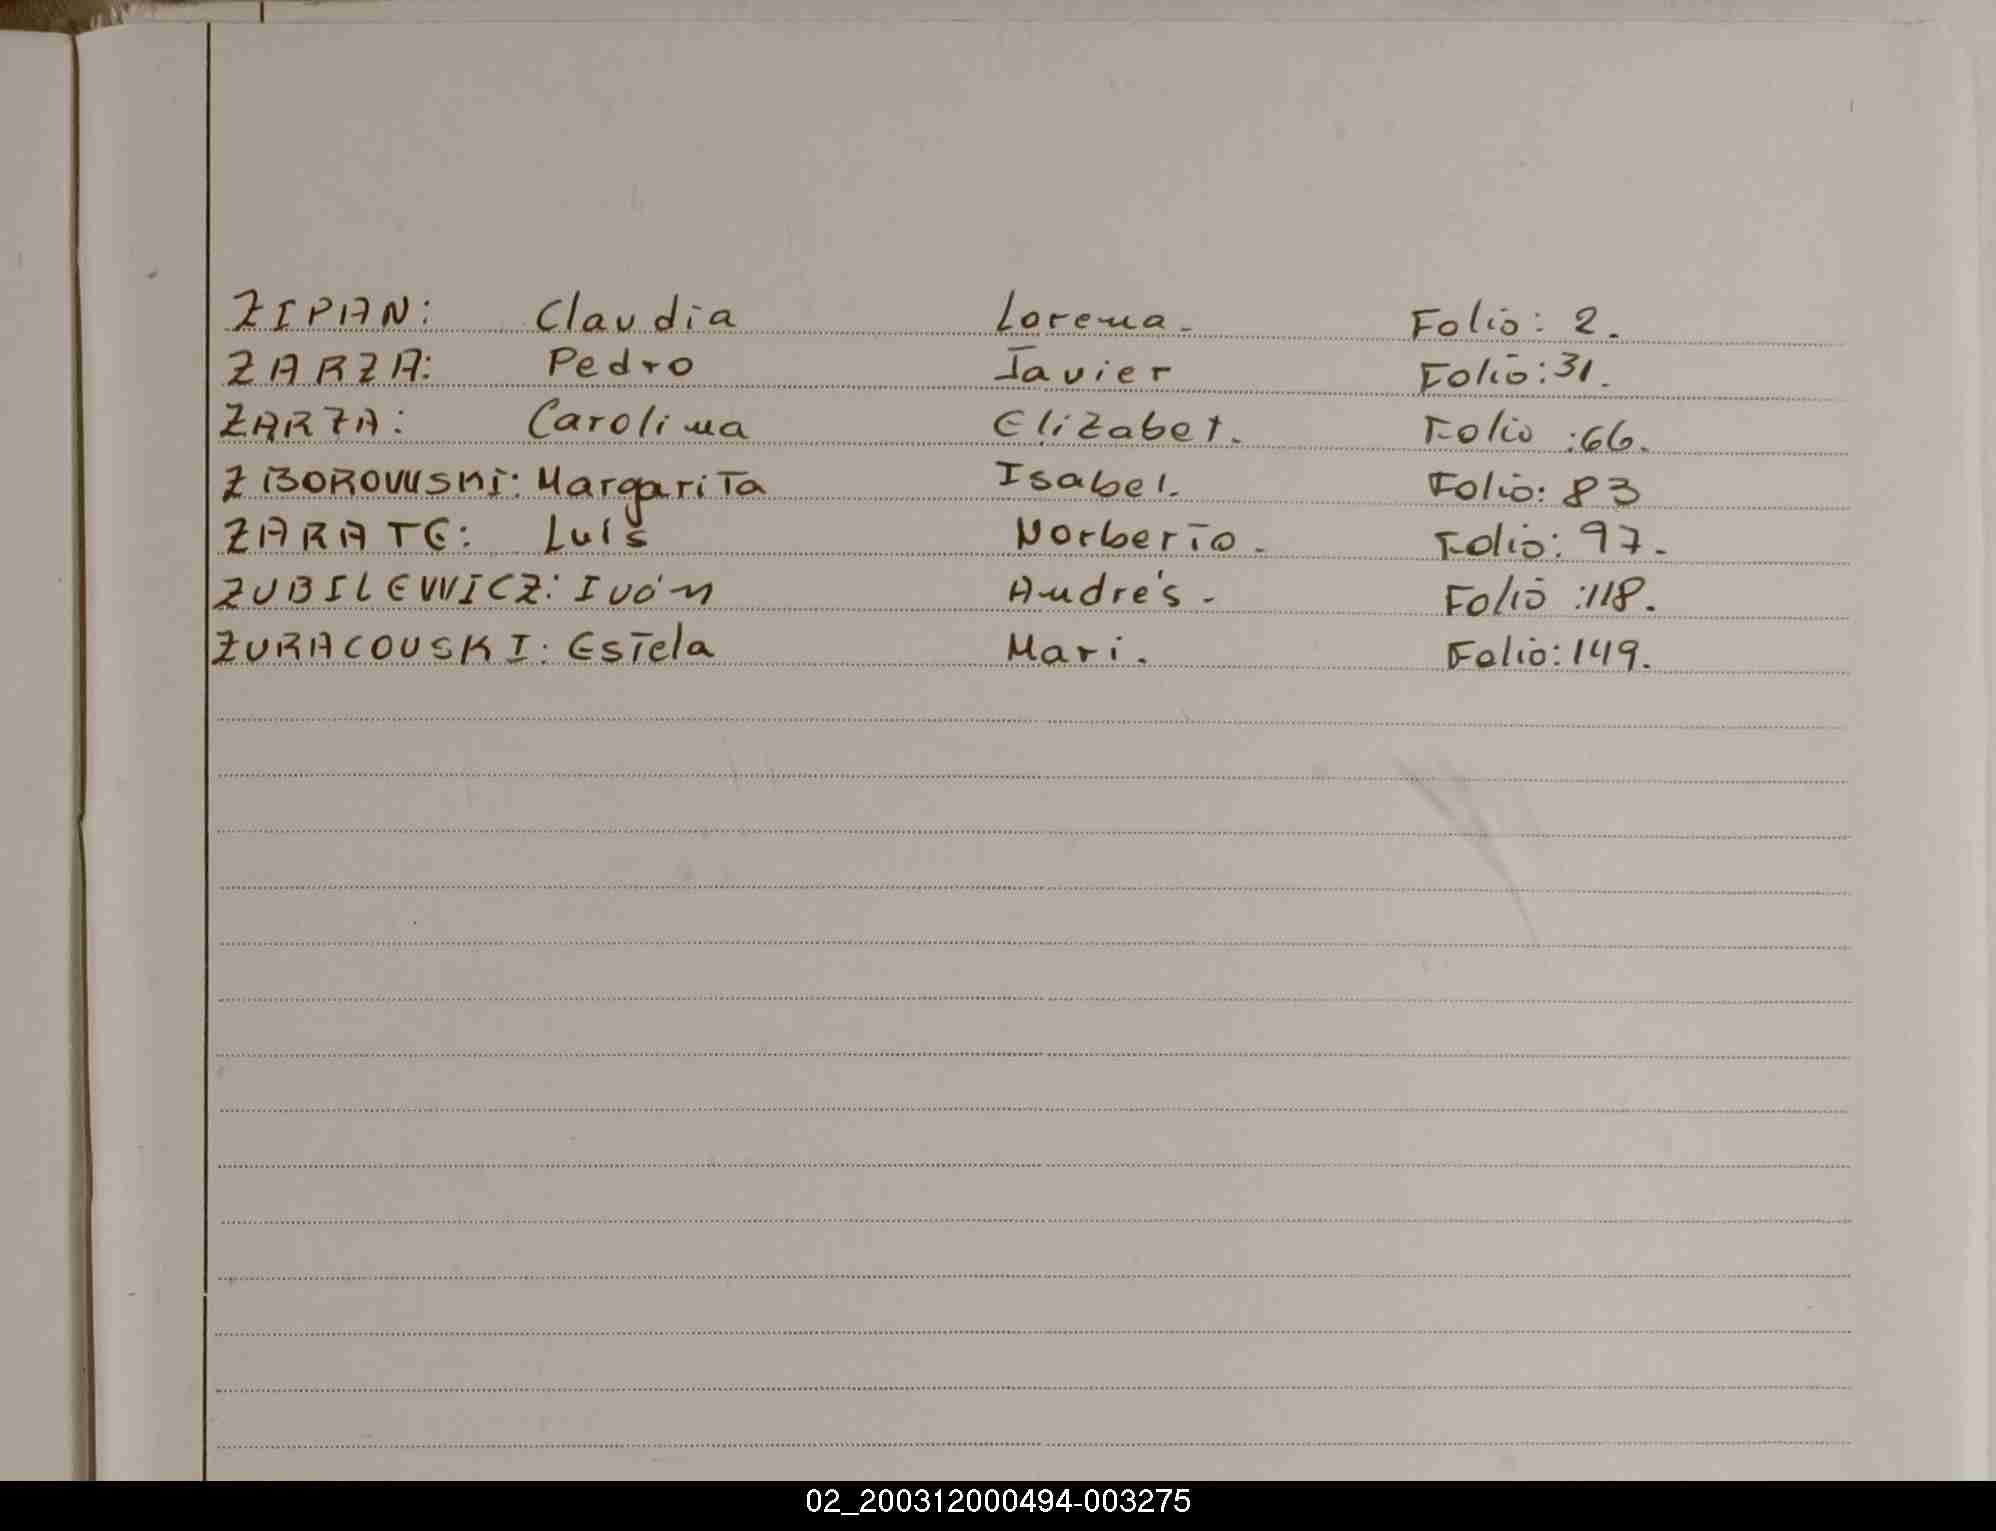 ZIPAN: Claudia Lorena. Folio: 2.
ZARZA: Pedro Javier Folio: 31.
ZARZA: Carolina Elizabet. Folio: 66.
ZBOROWSKI: Margarita Isabel. Folio: 83
ZARATE: Luis Norberto. Folio: 97.
ZUBILEWICZ: Iván Andrés. Folio: 118.
ZURACOUSKI: Estela Mari. Folio: 149.
02_200312000494-003275